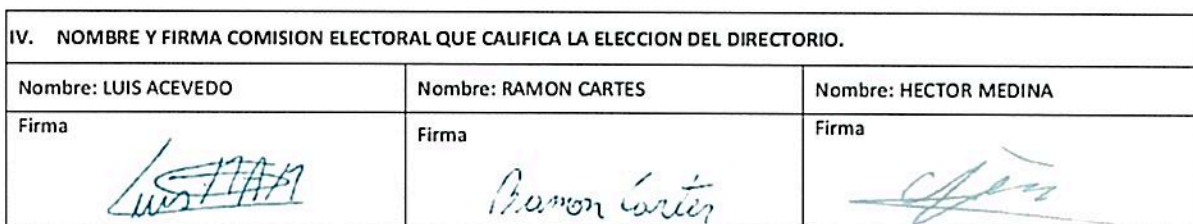 IV. NOMBRE Y FIRMA COMISION ELECTORAL QUE CALIFICA LA ELECCION DEL DIRECTORIO.
Nombre: LUIS ACEVEDO
Nombre: RAMON CARTES
Nombre: HECTOR MEDINA
Firma
Firma
Firma
Luis
Ramon Cartes